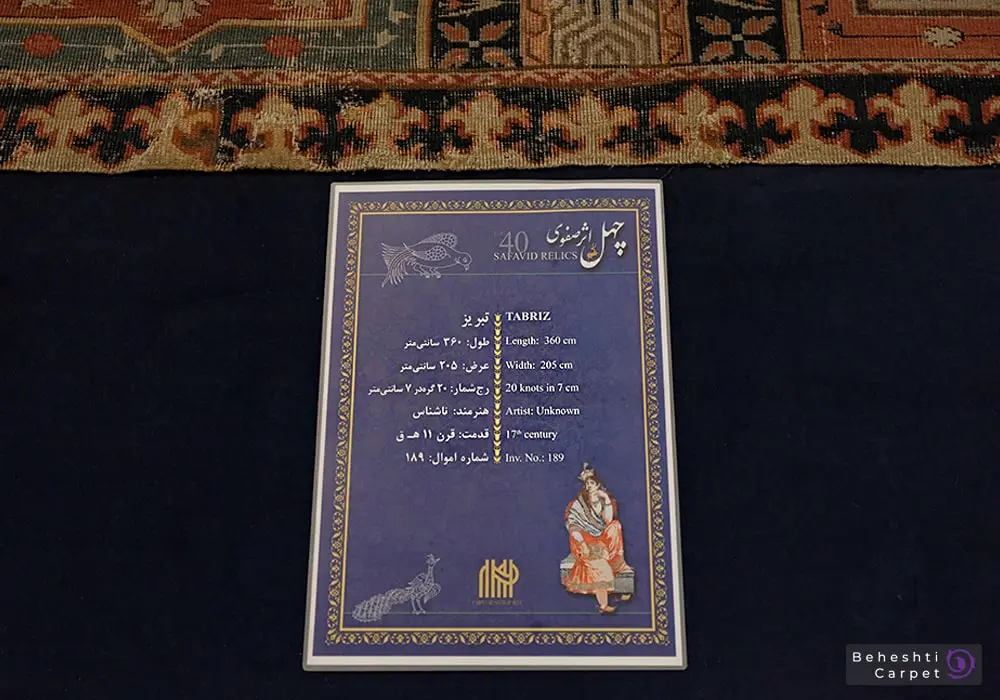 چهل اثر صفوی
40
SAFAVID RELICS
تبریز
TABRIZ
طول: ۳۶۰ سانتی‌متر
Length: 360 cm
عرض: ۲۰۵ سانتی‌متر
Width: 205 cm
رج‌شمار: ۲۰ گره در ۷ سانتی‌متر
20 knots in 7 cm
هنرمند: ناشناس
Artist: Unknown
قدمت: قرن ۱۱ هـ ق
17th century
شماره اموال: ۱۸۹
Inv. No.: 189
Beheshti
Carpet